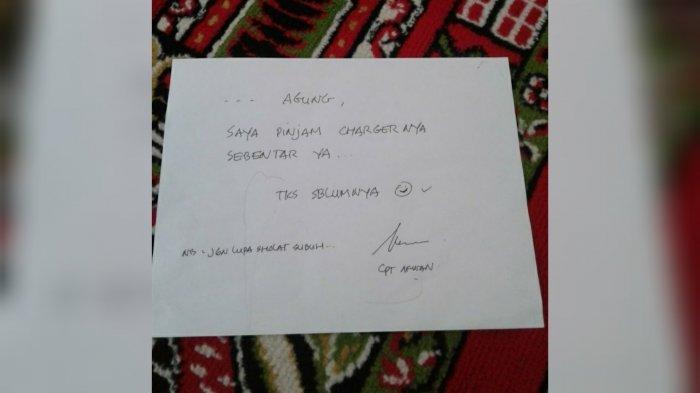 --- AGUNG,
SAYA PINJAM CHARGERNYA
SEBENTAR YA...
TKS SBLUMNYA
NB - JGN LUPA SHOLAT SUBUH...
CPT AFWAN